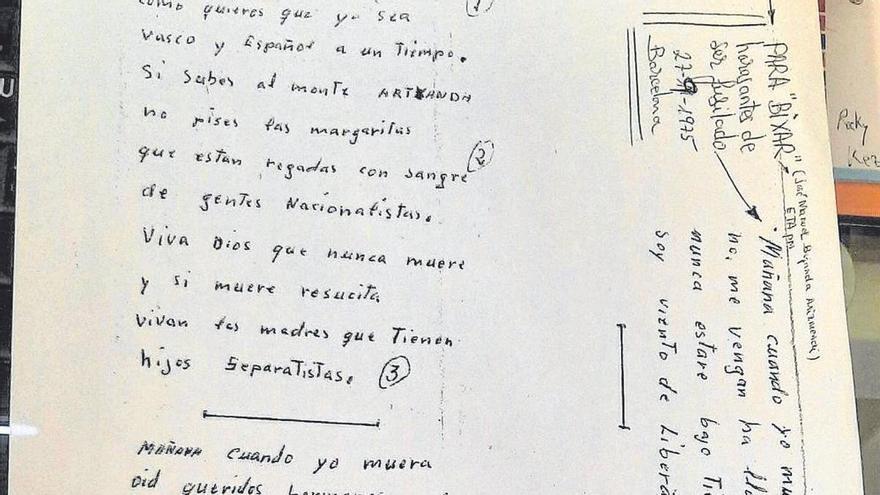 como quieres que yo sea ①
vasco y Español a un Tiempo.
Si Subes al monte ARTXANDA
no pises las margaritas
que estan regadas con sangre ②
de gentes Nacionalistas.
Viva Dios que nunca muere
y si muere resucita
vivan las madres que Tienen
hijos Separatistas. ③
MAÑANA Cuando yo muera
oid queridos
PARA "BIXAR" (José Manuel
ETA pm
de
ser fusilado
27-9-1975
Barcelona
Mañana cuando yo mu
no, me vengan ha llo
nunca estare bajo Ti
soy viento de Libera